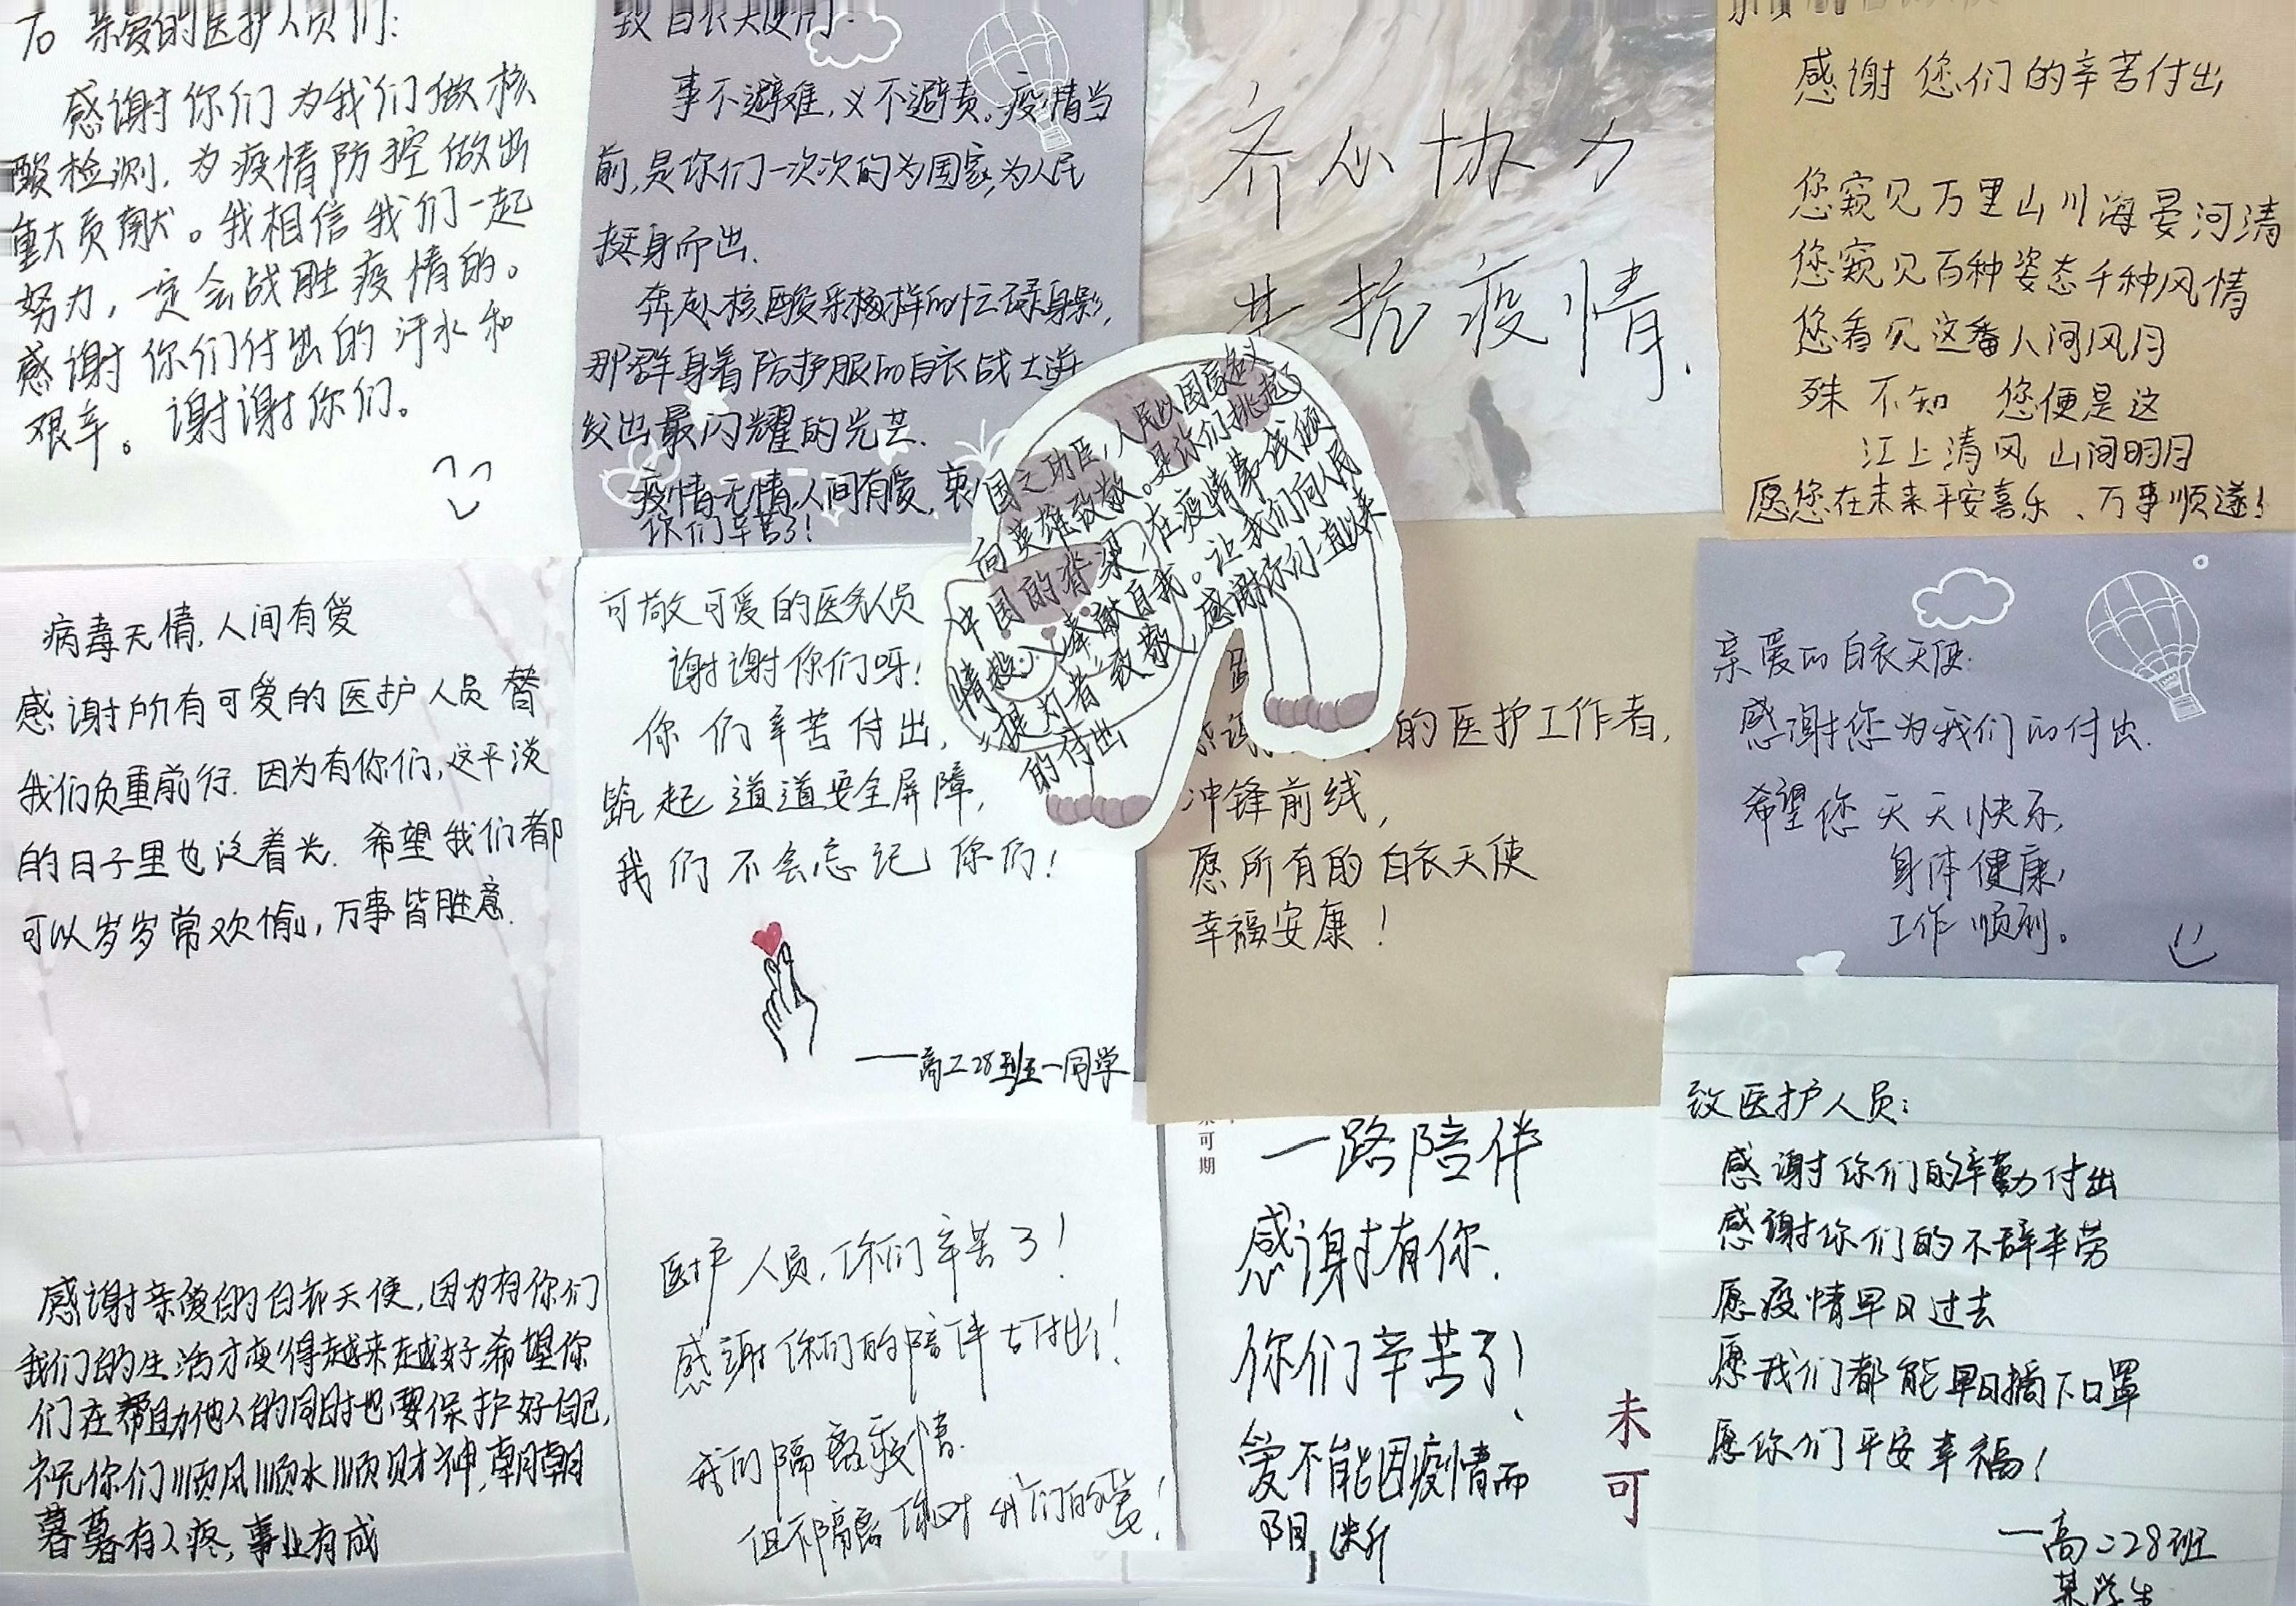 To 亲爱的医护人员们:
感谢你们为我们做核
酸检测,为疫情防控做出
重大贡献。我相信我们一起
努力,一定会战胜疫情的。
感谢你们付出的汗水和
艰辛。谢谢你们。
致白衣天使们:
事不避难,义不避责。疫情当
前,是你们一次次的为国家,为人民
挺身而出.
奔赴核酸采样的忙碌身影,
那群身着防护服的白衣战士迸
发出最闪耀的光芒.
疫情无情,人间有爱,
你们辛苦了!
齐心协力
共抗疫情.
感谢您们的辛苦付出
您窥见万里山川海晏河清
您窥见百种姿态千种风情
您看见这番人间风月
殊不知 您便是这
江上清风 山间明月
愿您在未来平安喜乐、万事顺遂!
国之功臣,人民以国家敬文
向英雄致敬。是你们挑起
中国的脊梁,在疫情第一线倾
情投入,奉献自我。让我们向人民
"提灯者"致敬,感谢你们一直以来
的付出
病毒无情,人间有爱
感谢所有可爱的医护人员替
我们负重前行.因为有你们,这平淡
的日子里也泛着光.希望我们都
可以岁岁常欢愉,万事皆胜意.
可敬可爱的医务人员
谢谢你们呀!
你们辛苦付出,
筑起道道安全屏障,
我们不会忘记你们!
——高二28班一同学
的医护工作者,
冲锋前线,
愿所有的白衣天使
幸福安康!
亲爱的白衣天使:
感谢您为我们的付出.
希望您天天快乐,
身体健康,
工作顺利。
感谢亲爱的白衣天使,因为有你们
我们的生活才变得越来越好.希望你
们在帮助他人的同时也要保护好自己,
祝你们顺风顺水顺财神,朝朝
暮暮有人疼,事业有成
医护人员,你们辛苦了!
感谢你们的陪伴与付出!
我们隔离疫情.
但不隔离你对我们的爱!
可期
一路陪伴
感谢有你.
你们辛苦了!
爱不能因疫情而
阻断
未可
致医护人员:
感谢你们的辛勤付出
感谢你们的不辞辛劳
愿疫情早日过去
愿我们都能早日摘下口罩
愿你们平安幸福!
——高二28班
某学生